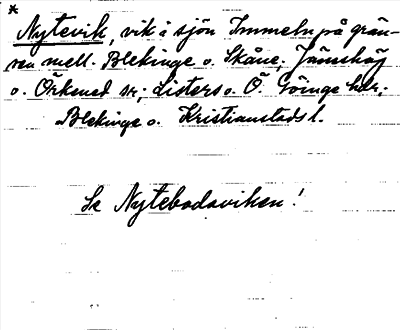 *
Nytevik, vik i sjön Immeln på grän-
sen mell. Blekinge o. Skåne; Jämshög
o. Örkened sn; Listers o. Ö. Göinge hdr;
Blekinge o. Kristianstads l.
Se Nytebodaviken!